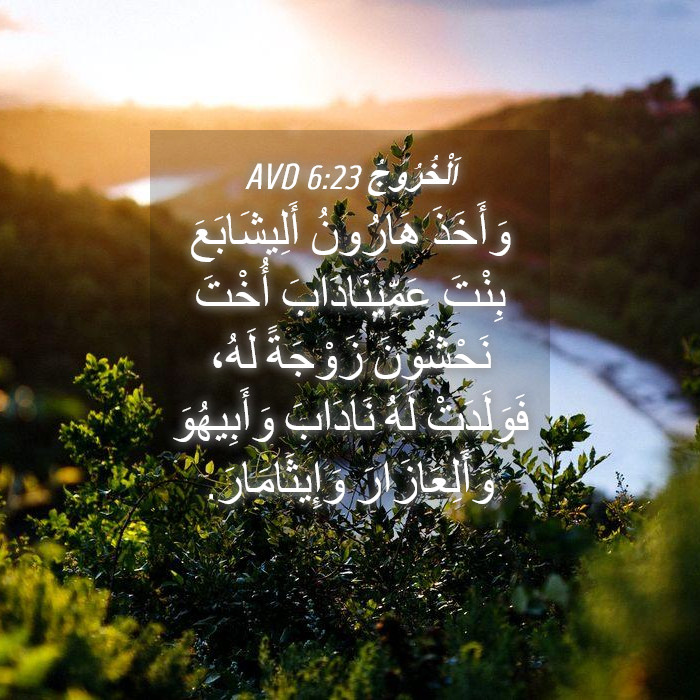 اَلْخُرُوجُ 6:23 AVD
وَأَخَذَ هَارُونُ أَلِيشَابَعَ
بِنْتَ عَمِّينَادَابَ أُخْتَ
نَحْشُونَ زَوْجَةً لَهُ،
فَوَلَدَتْ لَهُ نَادَابَ وَأَبِيهُوَ
وَأَلِعَازَارَ وَإِيثَامَارَ.